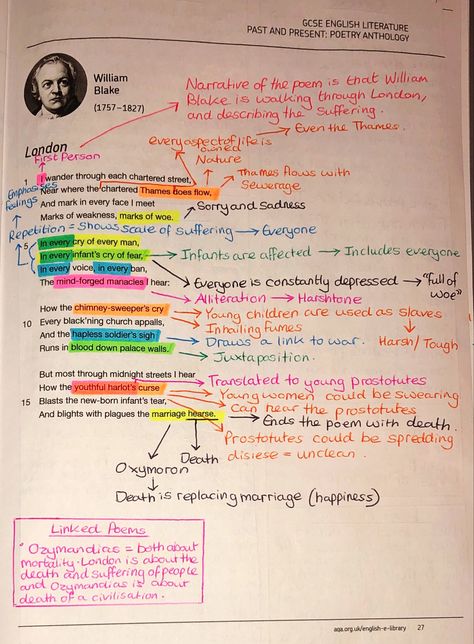 GCSE ENGLISH LITERATURE
PAST AND PRESENT: POETRY ANTHOLOGY
William
Blake
(1757–1827)
Narrative of the poem is that William
Blake is walking through London,
and describing the suffering.
Even the Thames.
London
First Person
every aspect of life is
owned
Nature
Thames flows with
Sewerage
1 I wander through each chartered street,
Near where the chartered Thames does flow,
And mark in every face I meet
Marks of weakness, marks of woe.
Emphasises
feelings
Sorry and Sadness
Repetition = Shows scale of suffering → Everyone
5 In every cry of every man,
In every infant's cry of fear,
In every voice, in every ban,
The mind-forged manacles I hear:
Infants are affected → Includes everyone
Everyone is constantly depressed → "full of
woe"
Alliteration → Harshtone
How the chimney-sweeper's cry
10 Every black'ning church appalls,
And the hapless soldier's sigh
Runs in blood down palace walls.
Young children are used as slaves
Inhailing fumes
Harsh/Tough
Draws a link to war.
Juxtaposition.
But most through midnight streets I hear
How the youthful harlot's curse
15 Blasts the new-born infant's tear,
And blights with plagues the marriage hearse.
Translated to young prostotutes
Young women could be swearing
Can hear the prostotutes
Ends the poem with death.
Prostotutes could be spredding
disiese = unclean.
Oxymoron
Death
Death is replacing marriage (happiness)
Linked Poems
• Ozymandias = both about
mortality. London is about the
death and suffering of people
and Ozymandias is about
death of a civilisation.
aqa.org.uk/english-e-library 27